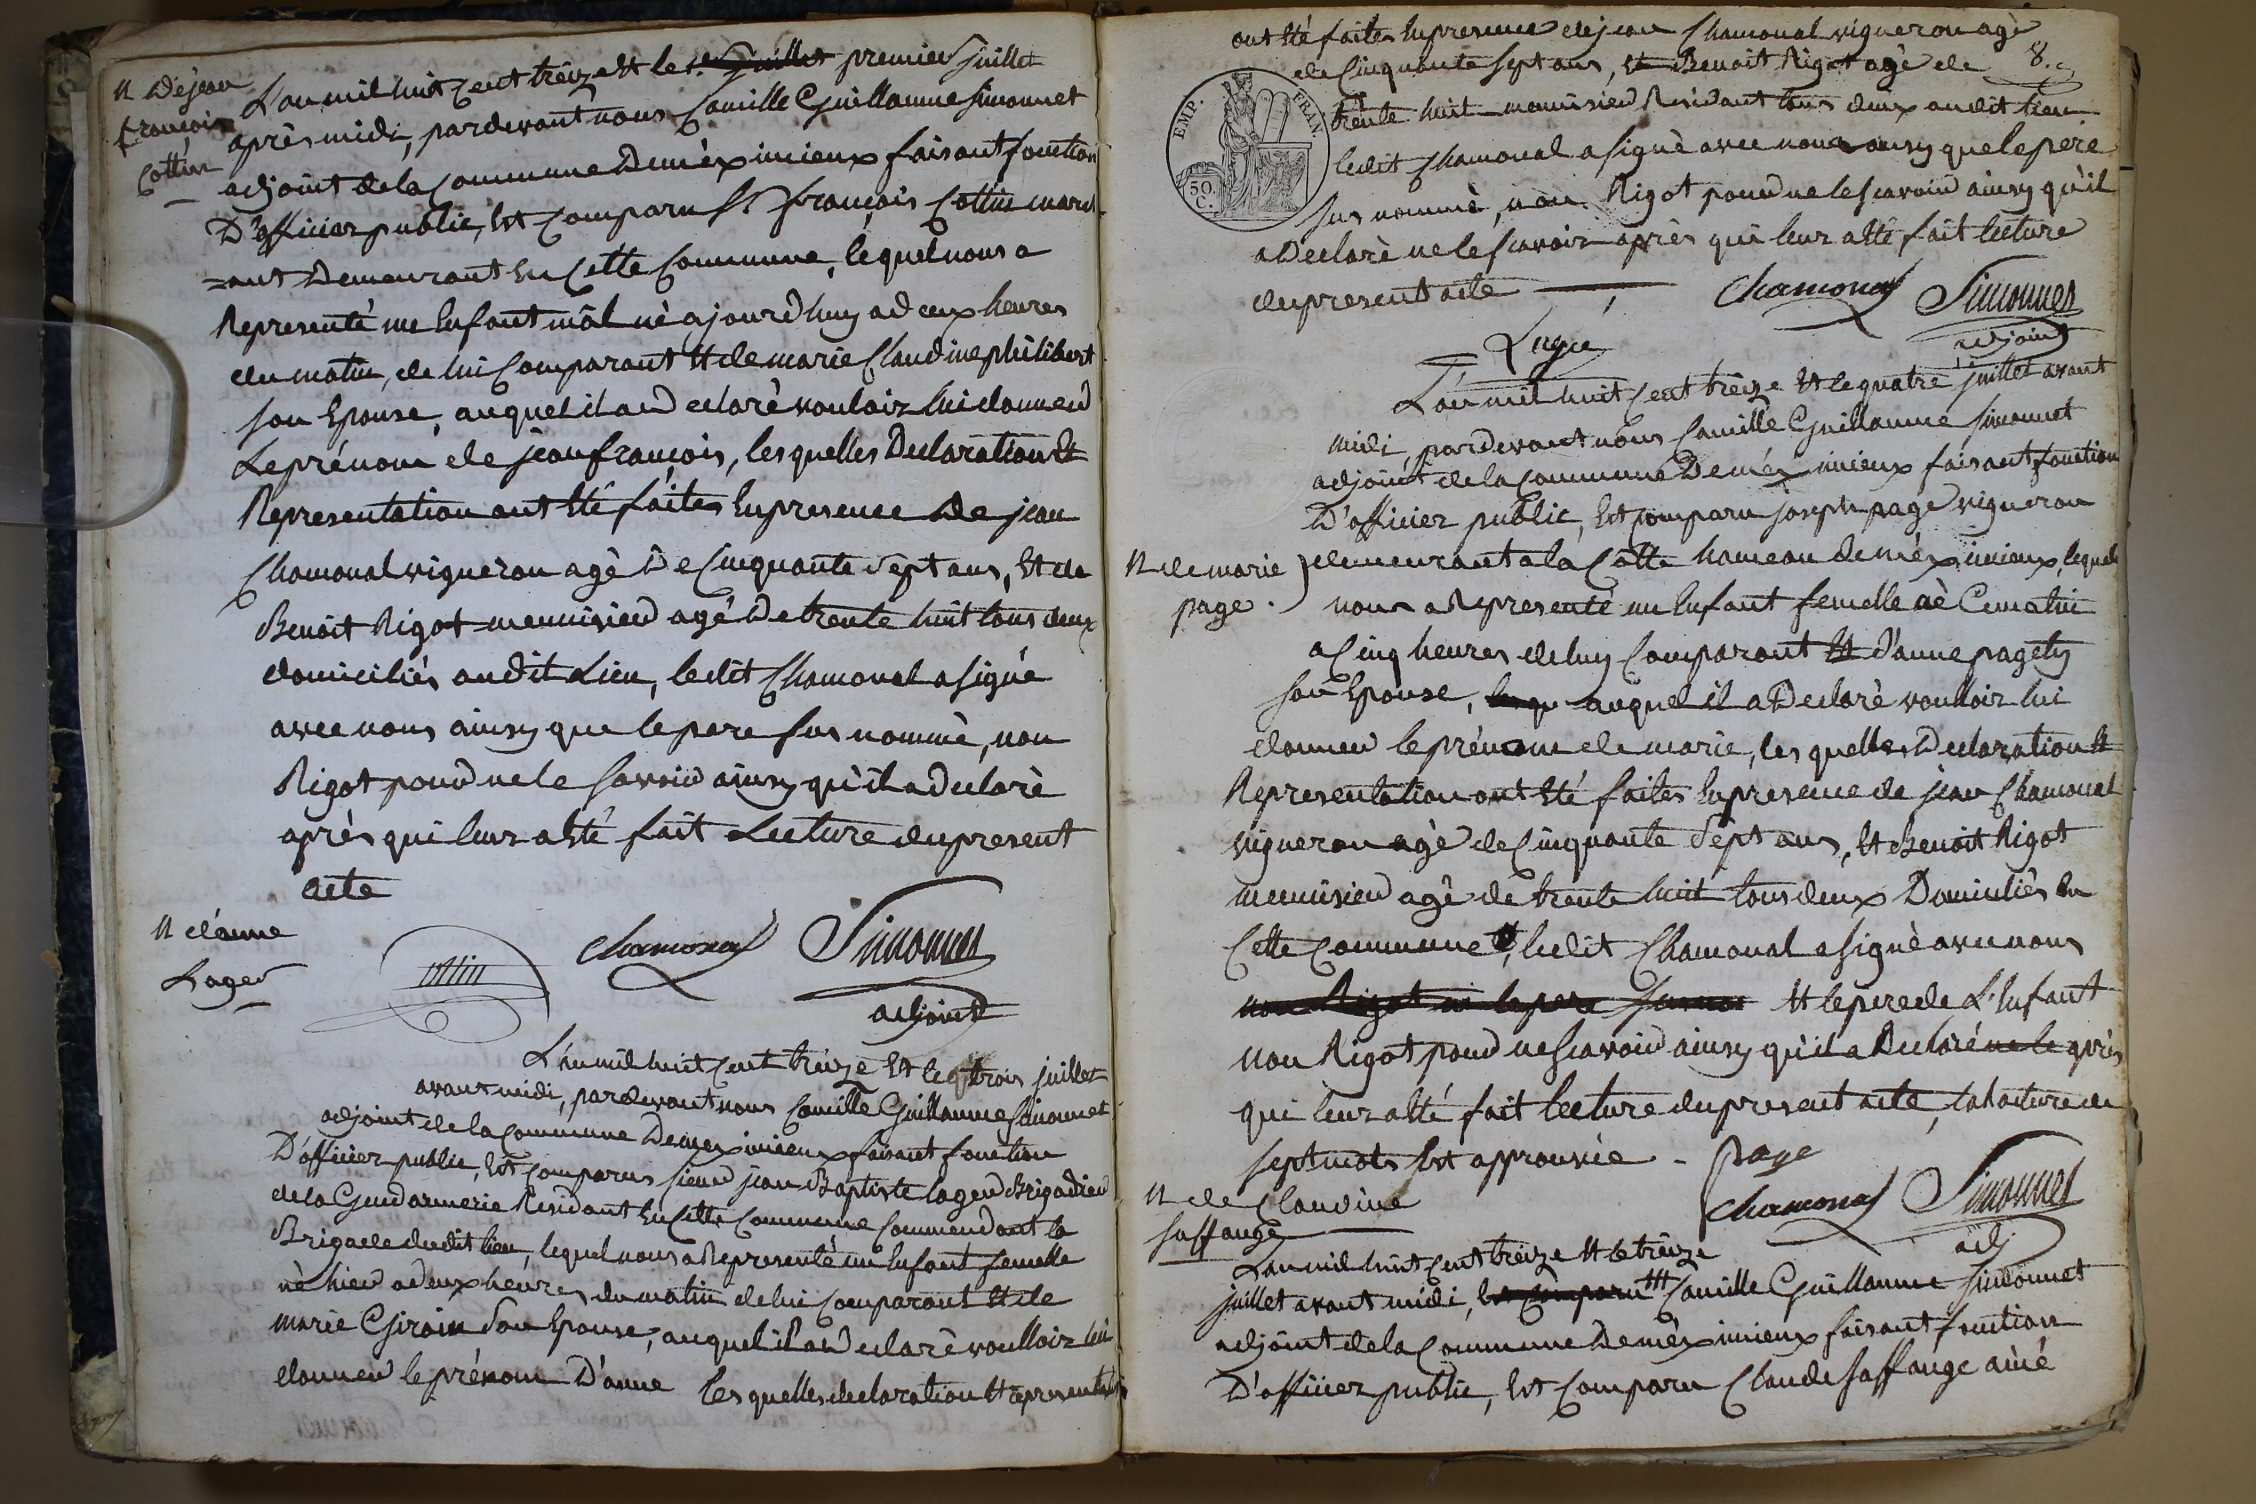 N De jean
françois
Cottin
L'an mil huit cent treize Et le 1.er Juillet premier Juillet
après midi, pardevant nous Camille Guillaume Simonnet
adjoint de la Commune De méximieux faisant fonction
D'officier public, Est comparu Sr françois Cottin march
=ant Demeurant En Cétte Commune, léquel nous a
Representé un Enfant mâl nè ajourd'huy a deux heures
du matin, de lui Comparant Et de marie Claudine philibert
son Epouse, auquel il a déclarè vouloir lui donner
Le prénom de jean françois, lesquelles Declaration Et
Representation ont Eté faites En presence De jean
Chamonal vigneron agè De Cinquante Sept ans, Et de
Benoit Rigot menuisier agé De trente huit tous deux
domiciliés audit Lieu, ledit Chamonal a signé
avec nous ainsy que le pere sus nommè, non
Rigot pour ne le savoir ainsy qu'il a Declarè
après qui leur a Eté fait Lecture du present
acte
Cottin Chamonal Simonnet
adjoint
N d'anne
Lager
L'an mil huit cent treize Et le trois juillet
avant midi, pardevant nous Camille Guillaume Simonnet
adjoint de la Commune De meximieux faisant fonction
D'officier public, Est comparus sieur jean Baptiste lager Brigadier
de la Gendarmerie Residant En Cette Commune Commendant la
Brigade dudit lieu, lequel nous a Representé un Enfant femelle
nè hier a deux heures du matin de lui Comparant Et de
marie Giroin Son Epouse, auquel il a Declarè voulloir lui
donner le prénom D'anne lesquelles declaration Et representation
ont Eté faites En presence de jean Chamonal vigneron agè
de Cinquante Sept ans, Et Benoit Rigot agè de 8.e
trente huit menuisier Residant tous deux audit lieu
ledit Chamonal a signè avec nous ainsy que le pere
sus nommè, non Rigot pour ne le scavoir ainsy qu'il
a Declarè ne le scavoir après qui leur a Eté fait lecture
du present acte
EMP. FRAN.
50.
C.
Chamonal Simonnet
adjoint
Lager
L'an mil huit cent treize Et le quatre juillet avant
midi, pardevant nous Camille Guillaume Simonnet
adjoint de la Commune De méximieux faisant fonction
D'officier public, Est comparu joseph page vigneron
N de marie
page.
demeurant a la Cotte hameau de méximieux, lequel
nous a Representé un Enfant femelle nè Ce matin
a Cinq heures de luy Comparant Et d'anne pagety
son Epouse, auquel il a Declarè voulloir lui
donner le prénom de marie, les quelles Declaration Et
Representation ont Eté faites En presence de jean Chamonal
vigneron agè de Cinquante Sept ans, Et Benoit Rigot
menuisier agè de trente huit tous deux Domiciliès En
Cette Commune, ledit Chamonal a signè avec nous
non Rigot ni le pere sus nom Et le pere de L'Enfant
non Rigot pour ne scavoir ainsy qu'il a Declaré ne le après
qui leur a Eté fait lecture du present acte, la rature de
sept mots Est approuvée - Page
Chamonal Simonnet
adj
N de Claudine
Saffange
L'an mil huit cent treize Et le treize
juillet avant midi, Est Comparu Camille Guillaume Simonnet
adjoint de la Commune De méximieux faisant fonction
D'officier public, Est Comparu Claude Saffange ainé